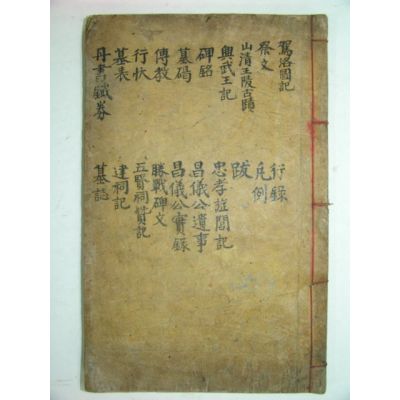 駕洛國記
祭文
山清王陵古蹟
興武王記
碑銘
墓碣
傳教
行狀
墓表
丹書鐵券
行錄
凡例
跋
忠孝旌閭記
昌儀公遺事
昌儀公實錄
勝戰碑文
五賢祠實記
建祠記
墓誌